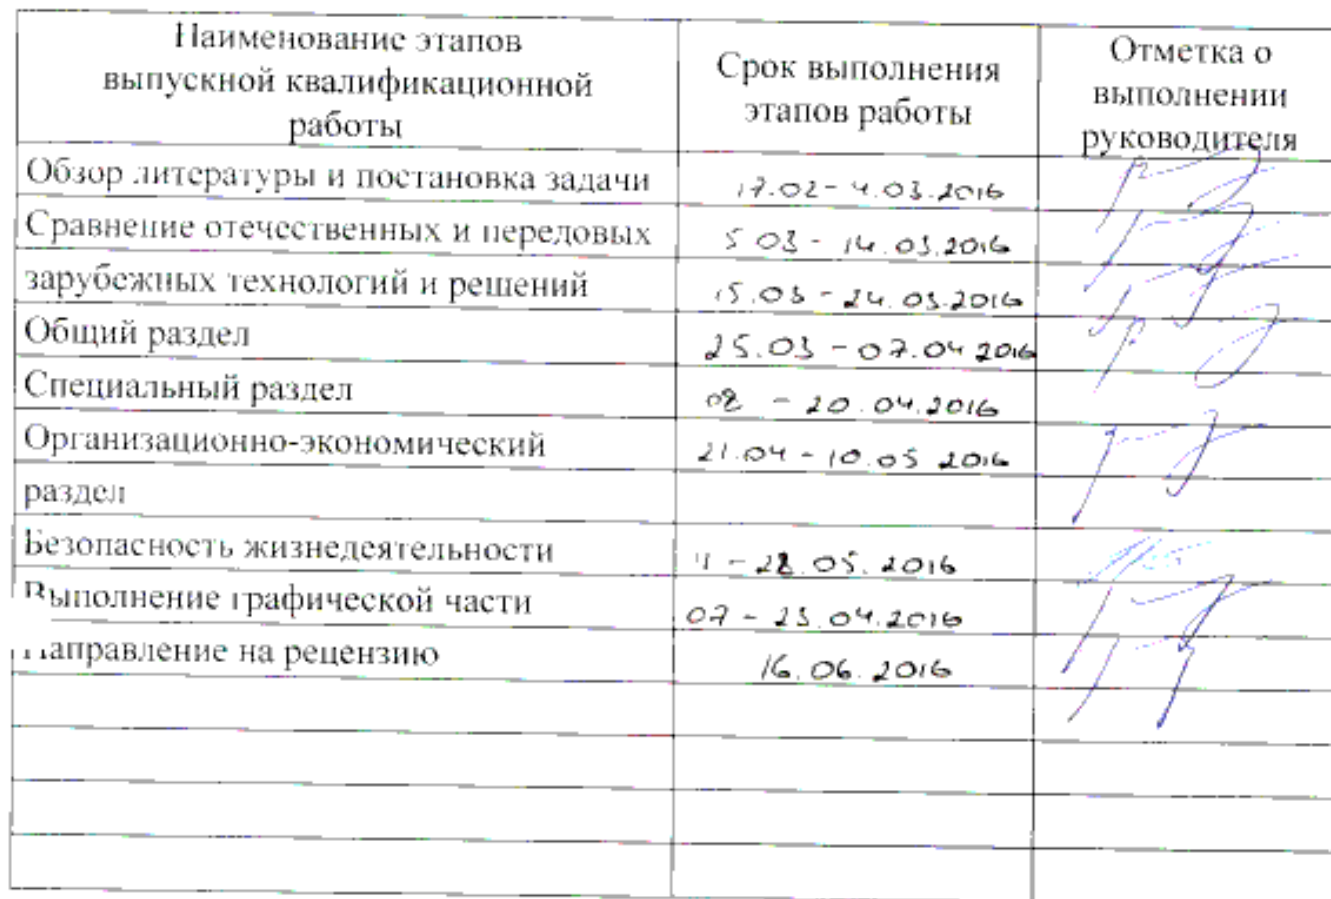 Наименование этапов
выпускной квалификационной
работы
Срок выполнения
этапов работы
Отметка о
выполнении
руководителя
Обзор литературы и постановка задачи 17.02 - 4.03.2016
Сравнение отечественных и передовых 5 03 - 14.03.2016
зарубежных технологий и решений 15.03 - 24.03.2016
Общий раздел 25.03 - 07.04 2016
Специальный раздел 08 - 20.04.2016
Организационно-экономический 21.04 - 10.05 2016
раздел
Безопасность жизнедеятельности 11 - 28.05.2016
Выполнение графической части 07 - 23.04.2016
Направление на рецензию 16.06.2016